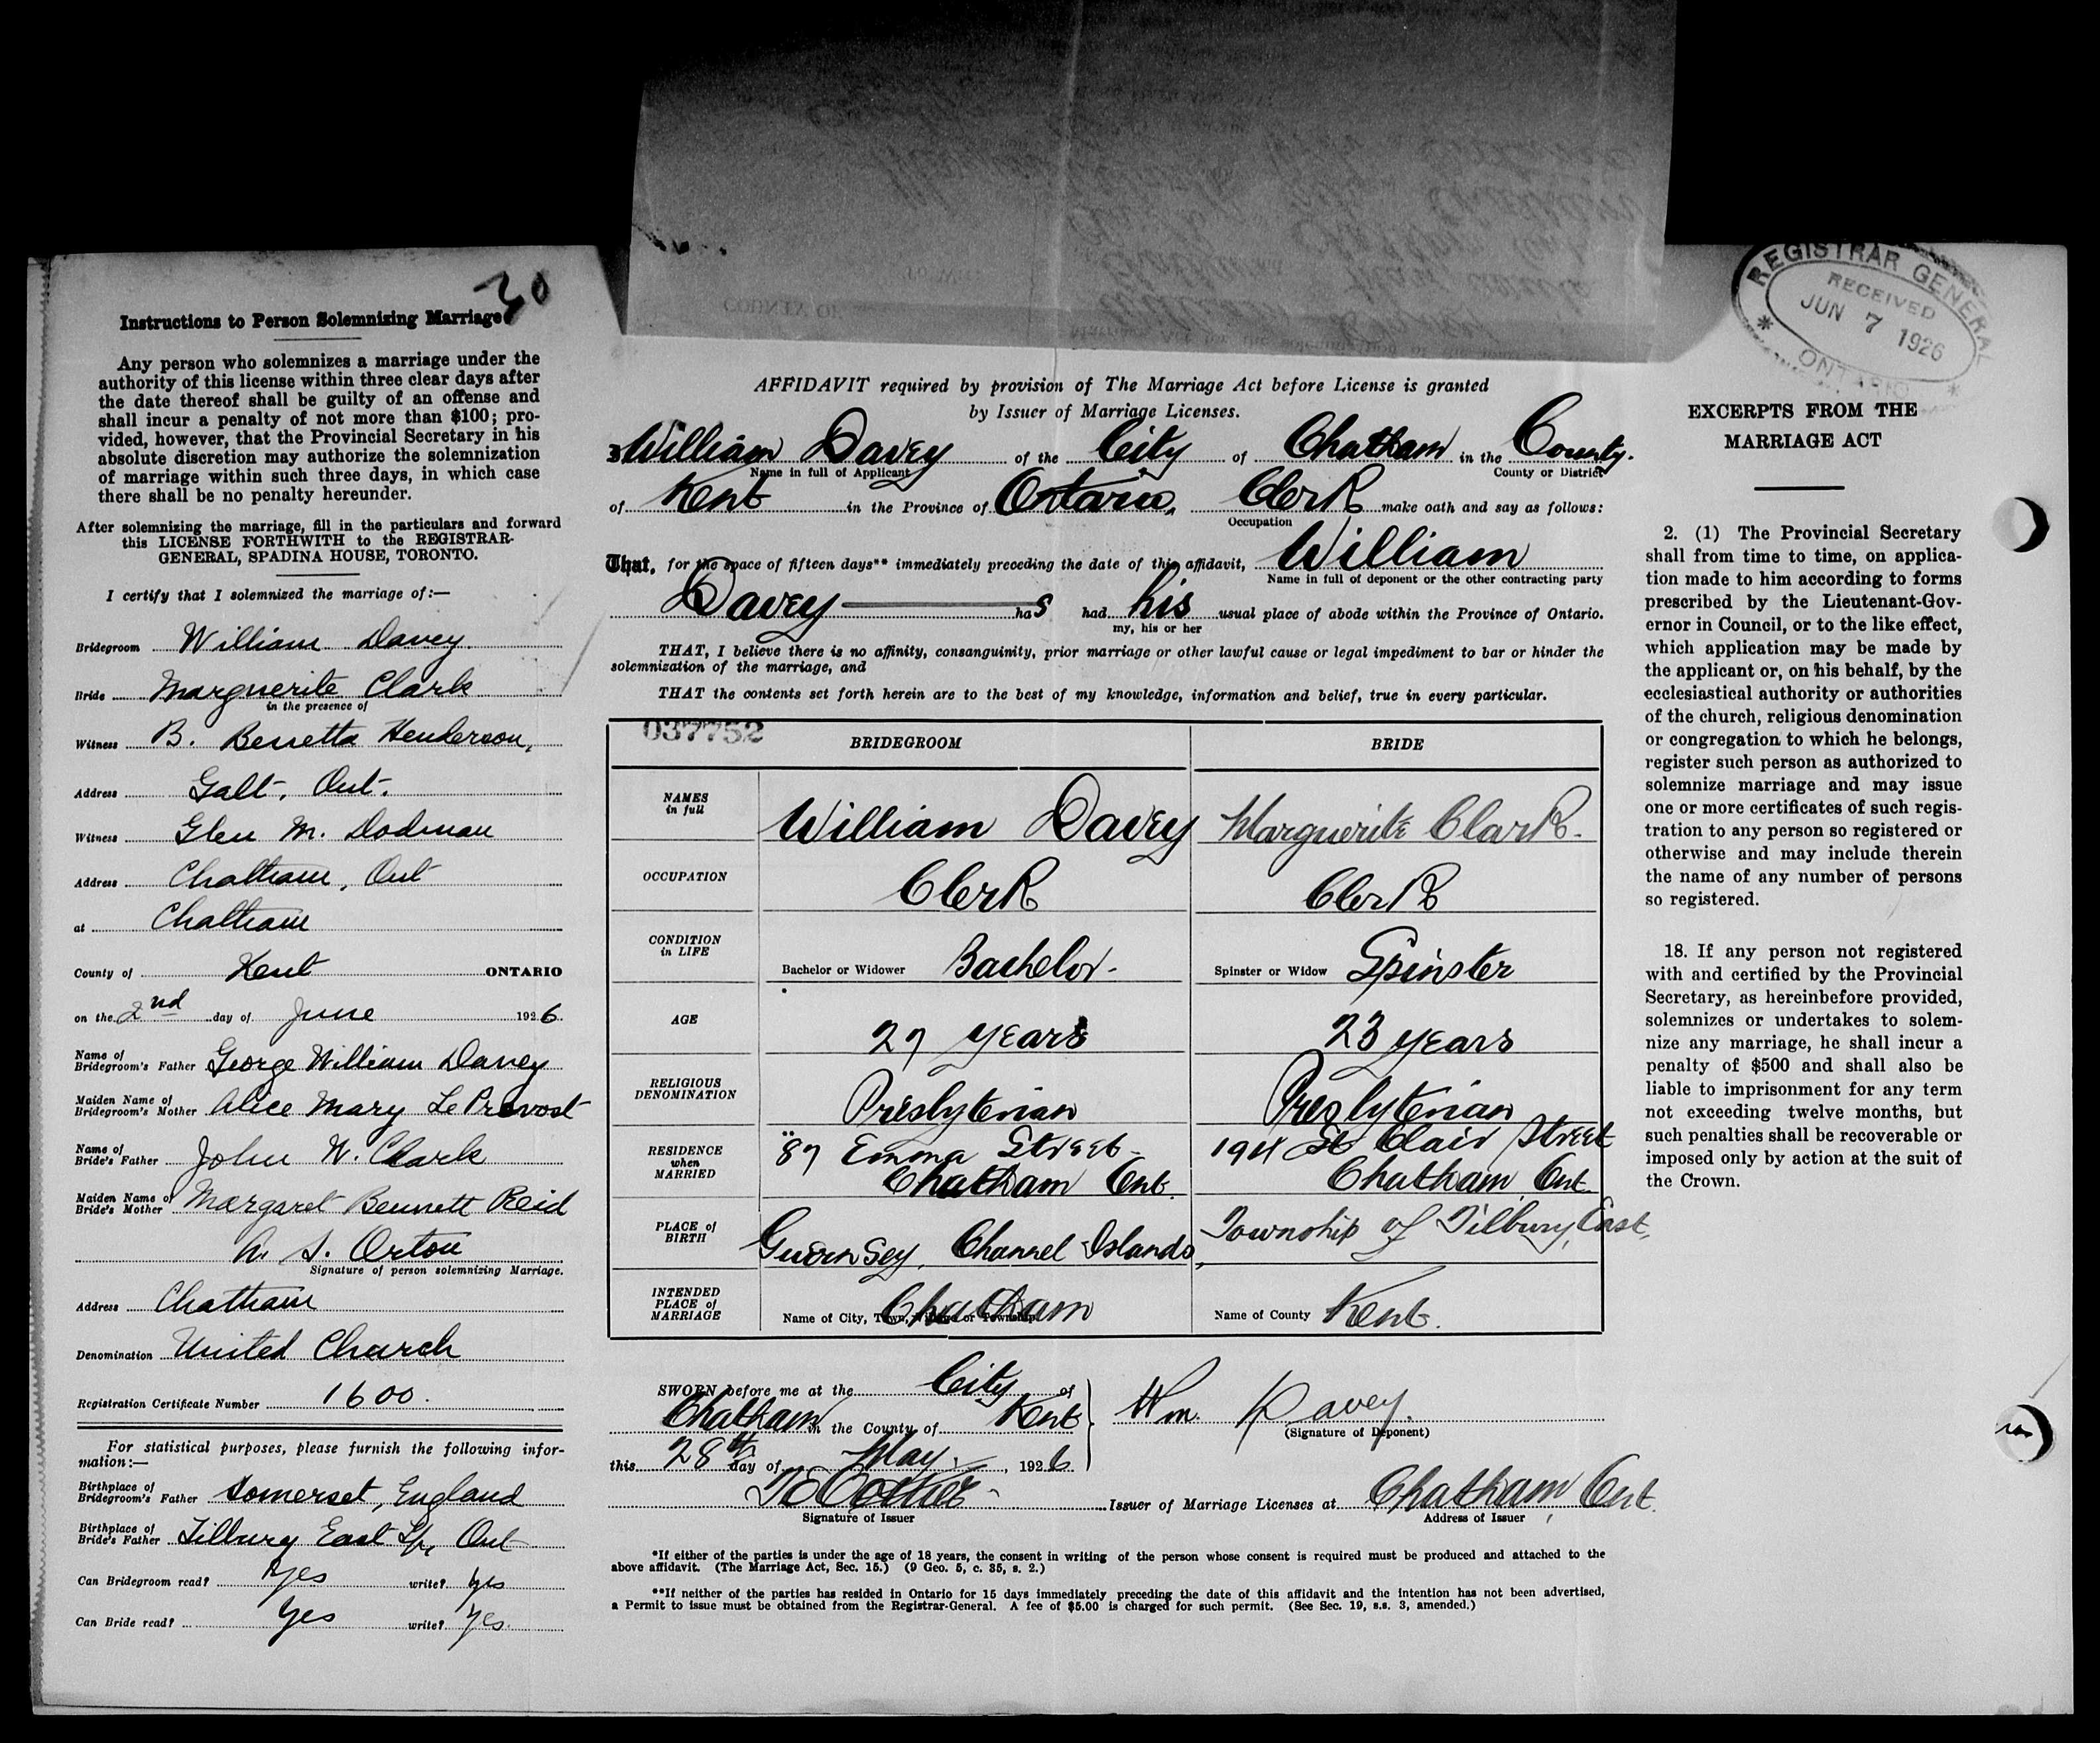 30
Instructions to Person Solemnizing Marriage
Any person who solemnizes a marriage under the
authority of this license within three clear days after
the date thereof shall be guilty of an offense and
shall incur a penalty of not more than $100; pro-
vided, however, that the Provincial Secretary in his
absolute discretion may authorize the solemnization
of marriage within such three days, in which case
there shall be no penalty hereunder.
After solemnizing the marriage, fill in the particulars and forward
this LICENSE FORTHWITH to the REGISTRAR-
GENERAL, SPADINA HOUSE, TORONTO.
I certify that I solemnized the marriage of:—
Bridegroom William Davey
Bride Marguerite Clark
in the presence of
Witness B. Berretta Henderson,
Address Galt, Ont.
Witness Glen M. Dodman
Address Chatham, Ont
at Chatham
County of Kent ONTARIO
on the 2nd day of June 1926
Name of
Bridegroom's Father George William Davey
Maiden Name of
Bridegroom's Mother Alice Mary Le Provost
Name of
Bride's Father John W. Clark
Maiden Name of
Bride's Mother Margaret Bennett Reid
R. S. Orton
Signature of person solemnizing Marriage.
Address Chatham
Denomination United Church
Registration Certificate Number 1600.
For statistical purposes, please furnish the following infor-
mation:—
Birthplace of
Bridegroom's Father Somerset, England
Birthplace of
Bride's Father Tilbury East Tp, Ont
Can Bridegroom read? Yes write? Yes
Can Bride read? Yes write? Yes.
COUNTY OF
AFFIDAVIT required by provision of The Marriage Act before License is granted
by Issuer of Marriage Licenses.
I William Davey of the City of Chatham in the County.
Name in full of Applicant County or District
of Kent in the Province of Ontario, Clerk make oath and say as follows:
Occupation
That, for the space of fifteen days** immediately preceding the date of this affidavit, William
Name in full of deponent or the other contracting party
Davey has had his usual place of abode within the Province of Ontario.
my, his or her
THAT, I believe there is no affinity, consanguinity, prior marriage or other lawful cause or legal impediment to bar or hinder the
solemnization of the marriage, and
THAT the contents set forth herein are to the best of my knowledge, information and belief, true in every particular.
037752
BRIDEGROOM BRIDE
NAMES in full William Davey Marguerite Clark.
OCCUPATION Clerk Clerk
CONDITION in LIFE Bachelor or Widower Bachelor. Spinster or Widow Spinster
AGE 27 years 23 years
RELIGIOUS DENOMINATION Presbyterian Presbyterian
RESIDENCE when MARRIED 87 Emma Street Chatham Ont. 194 St Clair Street Chatham Ont
PLACE of BIRTH Guernsey, Channel Islands, Township of Tilbury, East,
INTENDED PLACE of MARRIAGE Name of City, Town, Village or Township Chatham Name of County Kent.
SWORN before me at the City of
Chatham in the County of Kent
this 28th day of May, 1926
Wm. Davey.
(Signature of Deponent)
Issuer of Marriage Licenses at Chatham, Ont.
Signature of Issuer Address of Issuer
*If either of the parties is under the age of 18 years, the consent in writing of the person whose consent is required must be produced and attached to the
above affidavit. (The Marriage Act, Sec. 15.) (9 Geo. 5, c. 35, s. 2.)
**If neither of the parties has resided in Ontario for 15 days immediately preceding the date of this affidavit and the intention has not been advertised,
a Permit to issue must be obtained from the Registrar-General. A fee of $5.00 is charged for such permit. (See Sec. 19, s.s. 3, amended.)
REGISTRAR GENERAL
RECEIVED
JUN 7 1926
ONTARIO
EXCERPTS FROM THE
MARRIAGE ACT
2. (1) The Provincial Secretary
shall from time to time, on applica-
tion made to him according to forms
prescribed by the Lieutenant-Gov-
ernor in Council, or to the like effect,
which application may be made by
the applicant or, on his behalf, by the
ecclesiastical authority or authorities
of the church, religious denomination
or congregation to which he belongs,
register such person as authorized to
solemnize marriage and may issue
one or more certificates of such regis-
tration to any person so registered or
otherwise and may include therein
the name of any number of persons
so registered.
18. If any person not registered
with and certified by the Provincial
Secretary, as hereinbefore provided,
solemnizes or undertakes to solem-
nize any marriage, he shall incur a
penalty of $500 and shall also be
liable to imprisonment for any term
not exceeding twelve months, but
such penalties shall be recoverable or
imposed only by action at the suit of
the Crown.